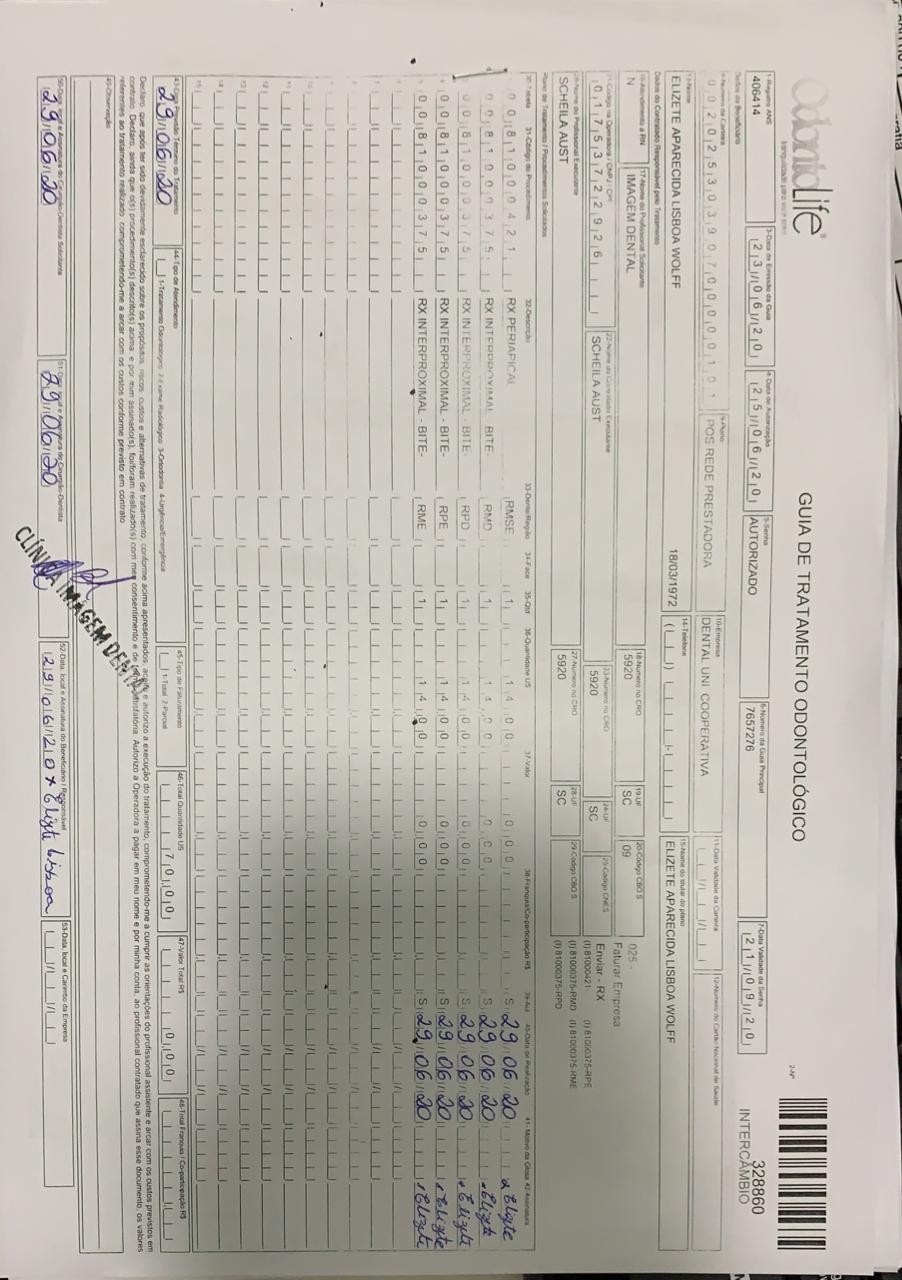 OdontoLife®
GUIA DE TRATAMENTO ODONTOLÓGICO
2-Nº
328860
INTERCÂMBIO
1-Registro ANS
406414
3-Data de Emissão da Guia
23/06/20
4-Data de Autorização
25/06/20
5-Senha
AUTORIZADO
6-Número da Guia Principal
7657276
7-Data Validade da Senha
21/09/20
Dados do Beneficiário
8-Número da Carteira
9-Plano
POS REDE PRESTADORA
10-Empresa
DENTAL UNI COOPERATIVA
11-Data Validade da Carteira
12-Número do Cartão Nacional de Saúde
13-Nome
ELIZETE APARECIDA LISBOA WOLFF
18/03/1972
14-Telefone
15-Nome do titular do plano
ELIZETE APARECIDA LISBOA WOLFF
Dados do Contratado Responsável pelo Tratamento
16-Atendimento a RN
N
17-Nome do Profissional Solicitante
IMAGEM DENTAL
18-Número no CRO
5920
19-UF
SC
20-Código CBO S
09
025 -
Faturar Empresa
21-Código na Operadora / CNPJ / CPF
01753722926
22-Nome do Contratado Executante
SCHEILA AUST
23-Número no CRO
5920
24-UF
SC
25-Código CNES
Enviar - RX
(I) 81000421- (I) 81000375-RPE
26-Nome do Profissional Executante
SCHEILA AUST
27-Número no CRO
5920
28-UF
SC
29-Código CBO S
(I) 81000375-RMD (I) 81000375-RME
(I) 81000375-RPD
Plano de Tratamento / Procedimentos Solicitados
30-Tabela 31-Código do Procedimento 32-Descrição 33-Dente/Região 34-Face 35-Qtd 36-Quantidade US 37-Valor 38-Franquia/Co-participação R$ 39-Aut 40-Data de Realização 41-Motivo da Glosa 42-Assinatura
00 81000421 RX PERIAPICAL RMSE 1 14,00 0,00 S 29/06/20 x Elizete
00 81000375 RX INTERPROXIMAL BITE- RMD 1 14,00 0,00 S 29/06/20 x Elizete
00 81000375 RX INTERPROXIMAL - BITE- RPD 1 14,00 0,00 S 29/06/20 x Elizete
00 81000375 RX INTERPROXIMAL - BITE- RPE 1 14,00 0,00 S 29/06/20 x Elizete
00 81000375 RX INTERPROXIMAL - BITE- RME 1 14,00 0,00 S 29/06/20 x Elizete
6
7
8
9
10
11
12
13
14
15
43-Data Previsão Término do Tratamento
29/06/20
44-Tipo de Atendimento
1-Tratamento Odontológico 2-Exame Radiológico 3-Ortodontia 4-Urgência/Emergência
45-Tipo de Faturamento
1-Total 2-Parcial
46-Total Quantidade US
70,00
47-Valor Total R$
0,00
48-Total Franquia / Co-participação R$
Declaro, que após ter sido devidamente esclarecido sobre os propósitos, riscos, custos e alternativas de tratamento, conforme acima apresentados, aceito e autorizo a execução do tratamento, comprometendo-me a cumprir as orientações do profissional assistente e arcar com os custos previstos em
contrato. Declaro, ainda que o(s) procedimento(s) descrito(s) acima, e por mim assinado(s), foi/foram realizado(s) com meu consentimento e de forma satisfatória. Autorizo a Operadora a pagar em meu nome e por minha conta, ao profissional contratado que assina esse documento, os valores
referentes ao tratamento realizado, comprometendo-me a arcar com os custos conforme previsto em contrato.
49-Observação
50-Data, local e Assinatura do Cirurgião-Dentista Solicitante
29/06/20
51-Data, local e Assinatura do Cirurgião-Dentista
29/06/20
CLÍNICA IMAGEM DENTAL
52-Data, local e Assinatura do Beneficiário / Responsável
29/06/20 x Elizete Lisboa
53-Data, local e Carimbo da Empresa